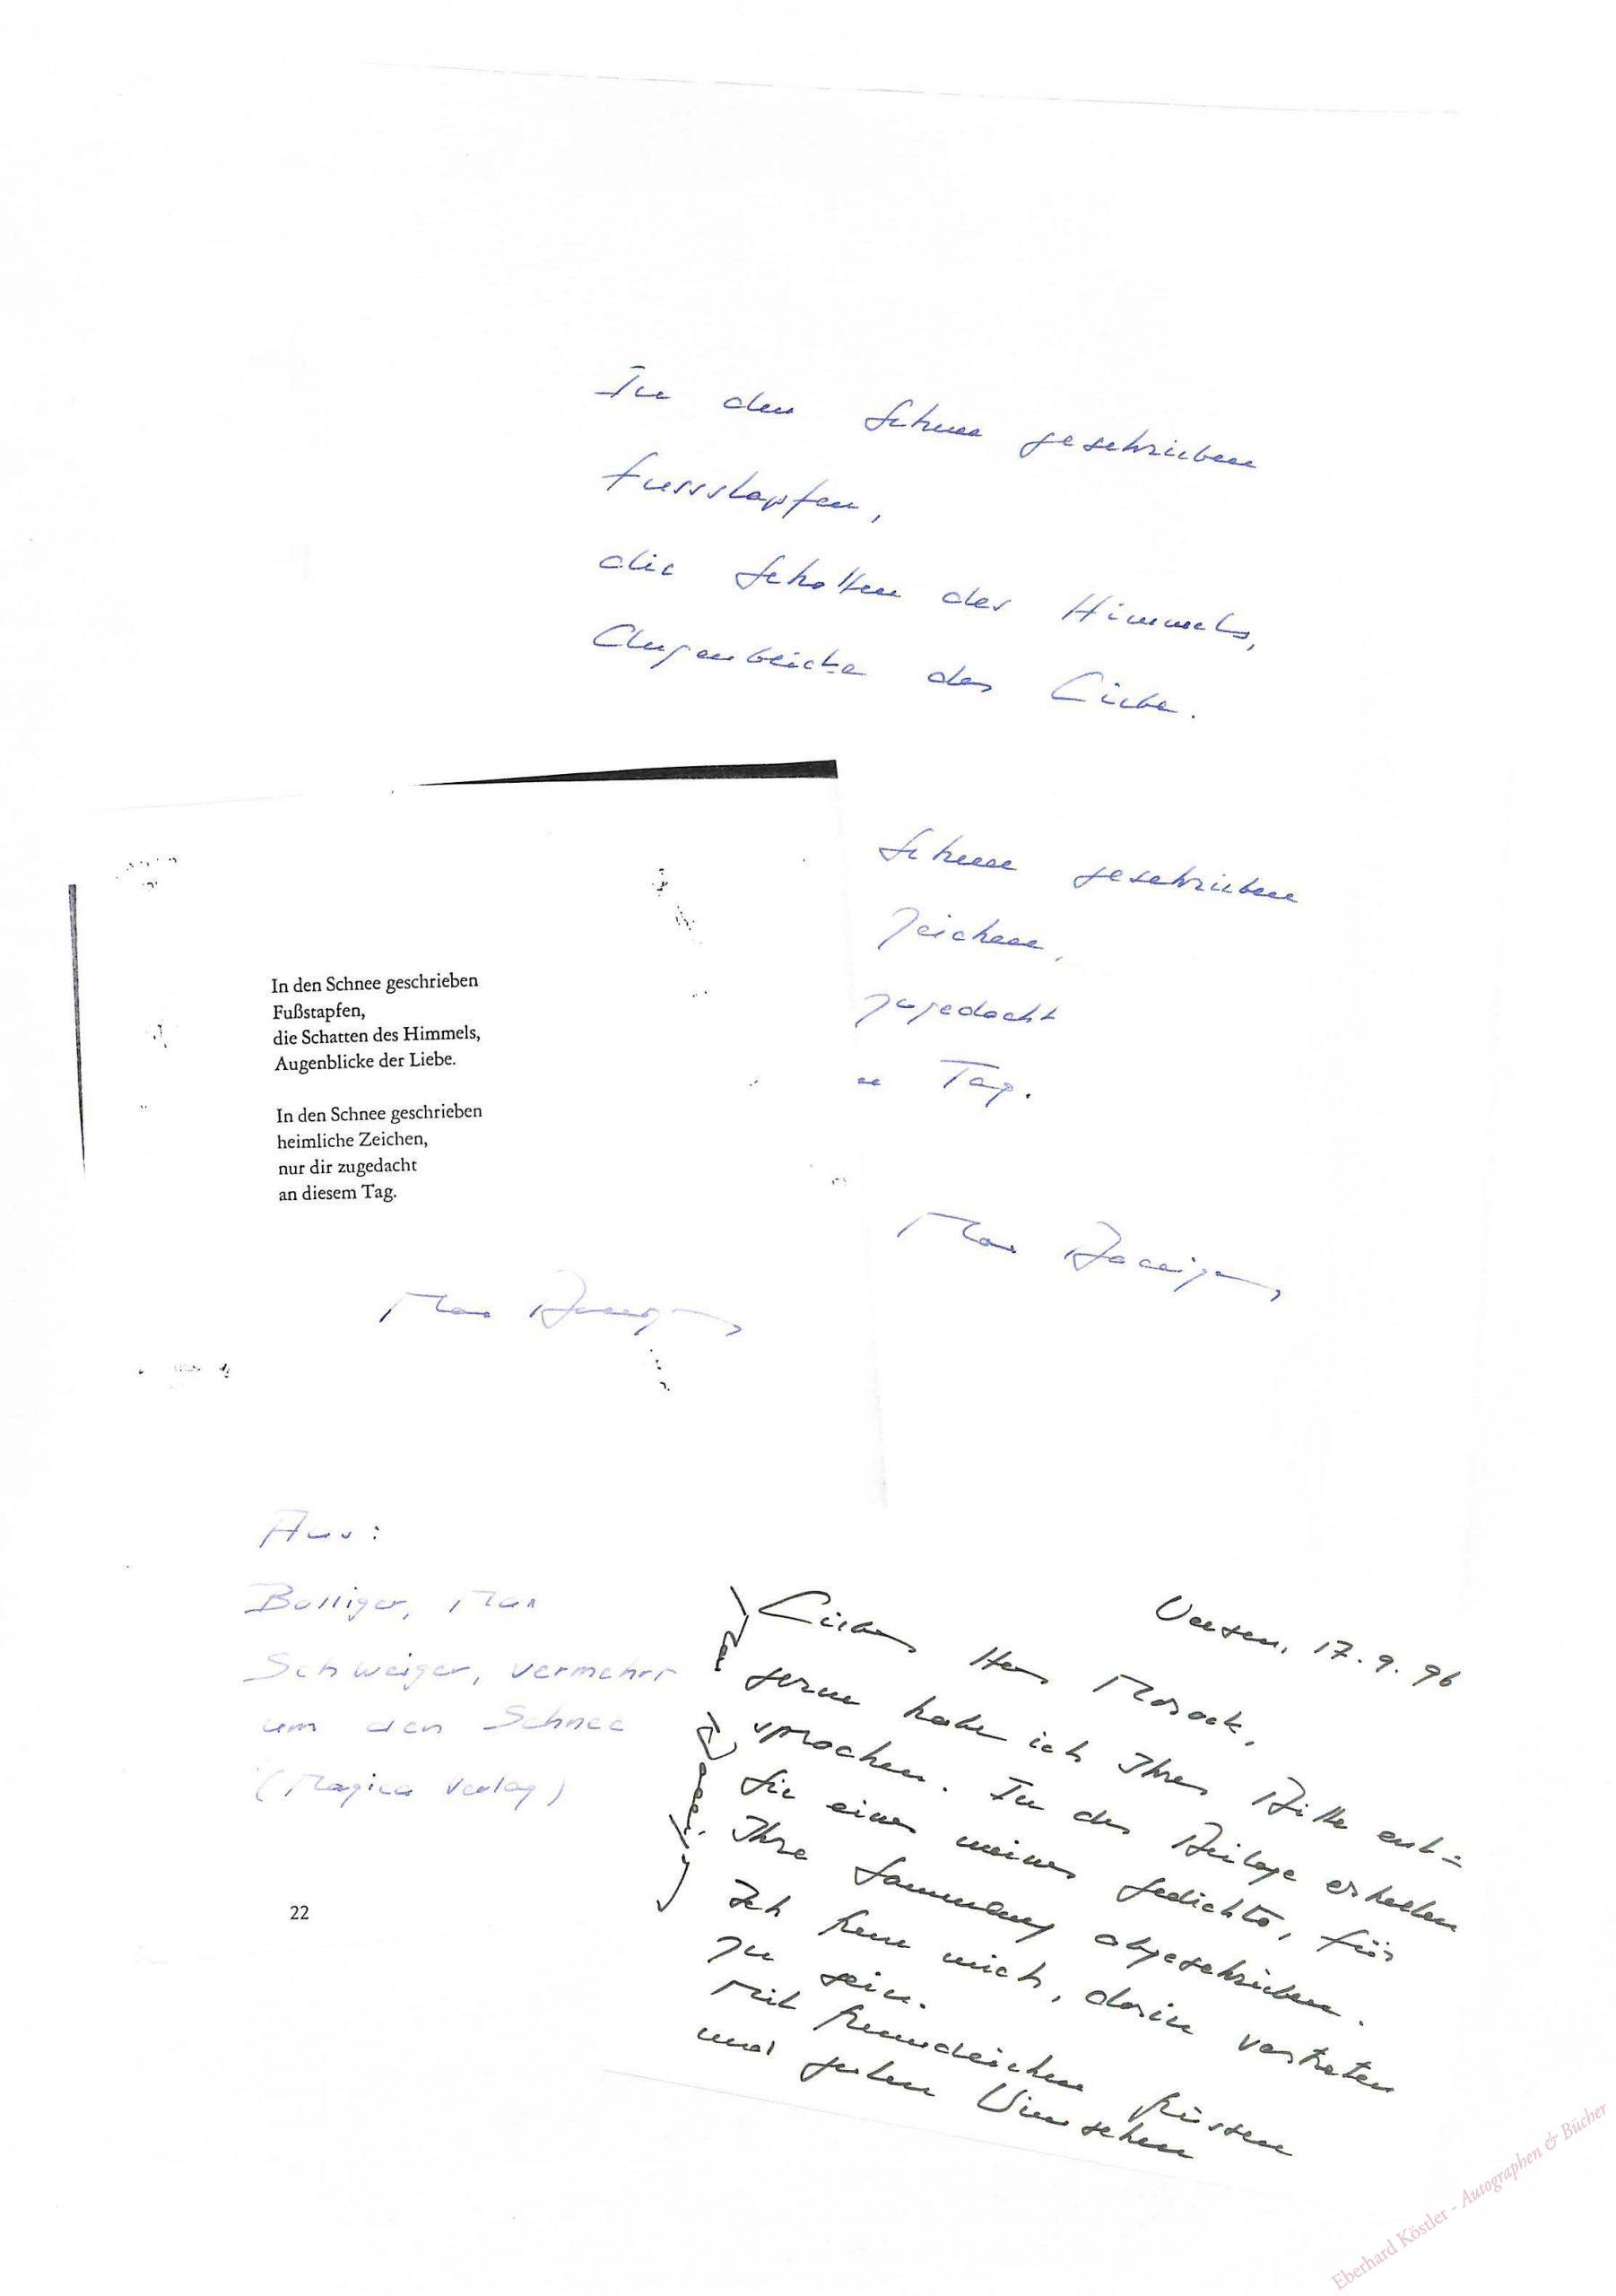 In den Schnee geschrieben
Fussstapfen,
die Schatten des Himmels,
Augenblicke der Liebe.
Schnee geschrieben
Zeichen,
zugedacht
Tag.
Max Bolliger
In den Schnee geschrieben
Fußstapfen,
die Schatten des Himmels,
Augenblicke der Liebe.
In den Schnee geschrieben
heimliche Zeichen,
nur dir zugedacht
an diesem Tag.
Max Bolliger
Aus:
Bolliger, Max
Schweiger, vermehrt
um den Schnee
(Magica Verlag)
22
Weesen, 17.9.96
Lieber Herr
gerne habe ich Ihrer Bitte ent=
sprochen. In der Beilage erhalten
Sie eines meiner Gedichte, für
Ihre Sammlung abgeschrieben.
Ich freue mich, darin vertreten
zu sein.
Mit freundlichen Grüssen
und guten Wünschen
Eberhard Köstler - Autographen & Bücher